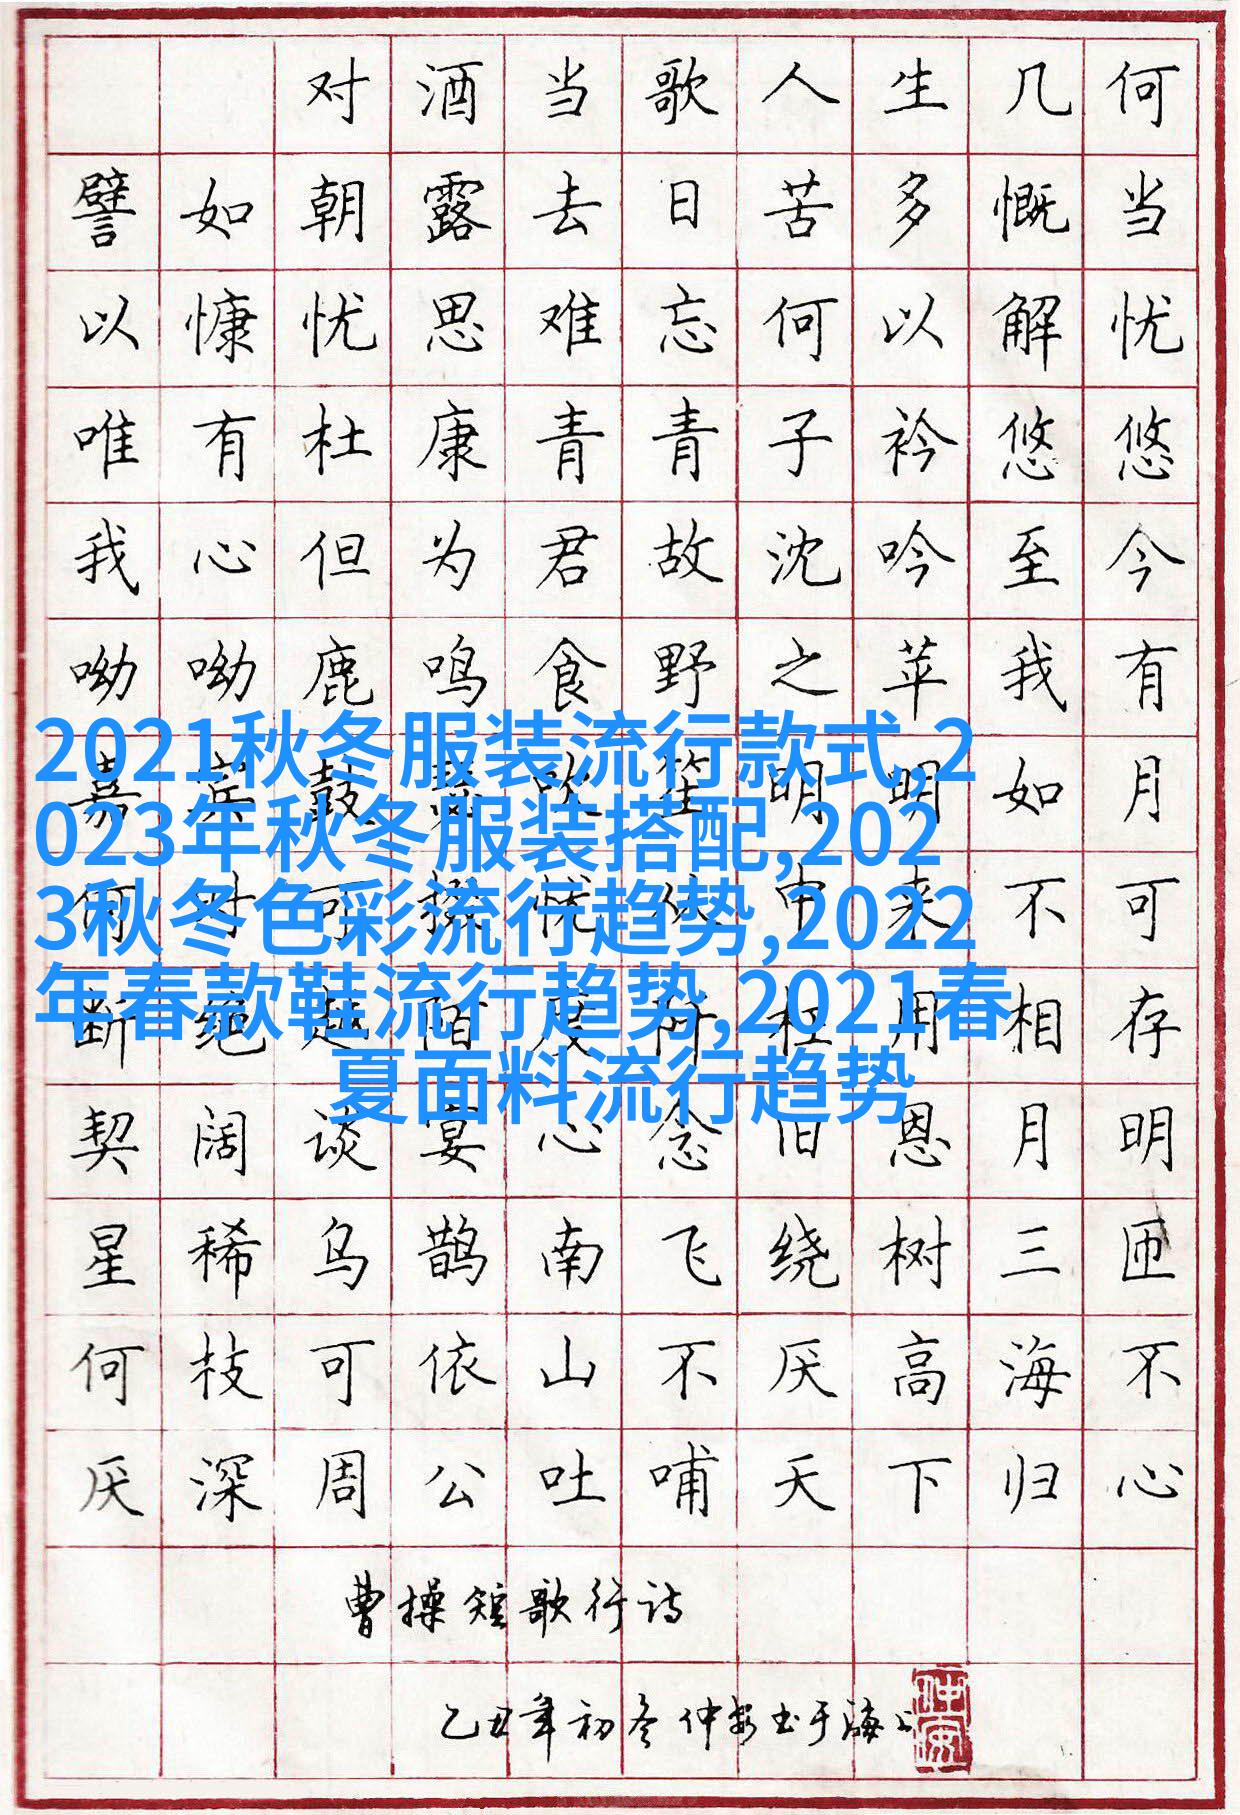 对酒当歌人生几何
譬如朝露去日苦多慨当
以慷忧思难忘何以解忧
唯有杜康青青子衿悠悠
我心但为君故沈吟至今
呦呦鹿鸣食野之苹我有
嘉宾鼓瑟吹笙明明如月
2021秋冬服装流行款式,2
023年秋冬服装搭配,202
3秋冬色彩流行趋势,2022
年春款鞋流行趋势,2021春
夏面料流行趋势
何时可掇忧从中来不可
断绝越陌度阡枉用相存
契阔谈宴心念旧恩月明
星稀乌鹊南飞绕树三匝
何枝可依山不厌高海不
厌深周公吐哺天下归心
曹操短歌行诗
乙丑年初冬仲安书于海上
仲安